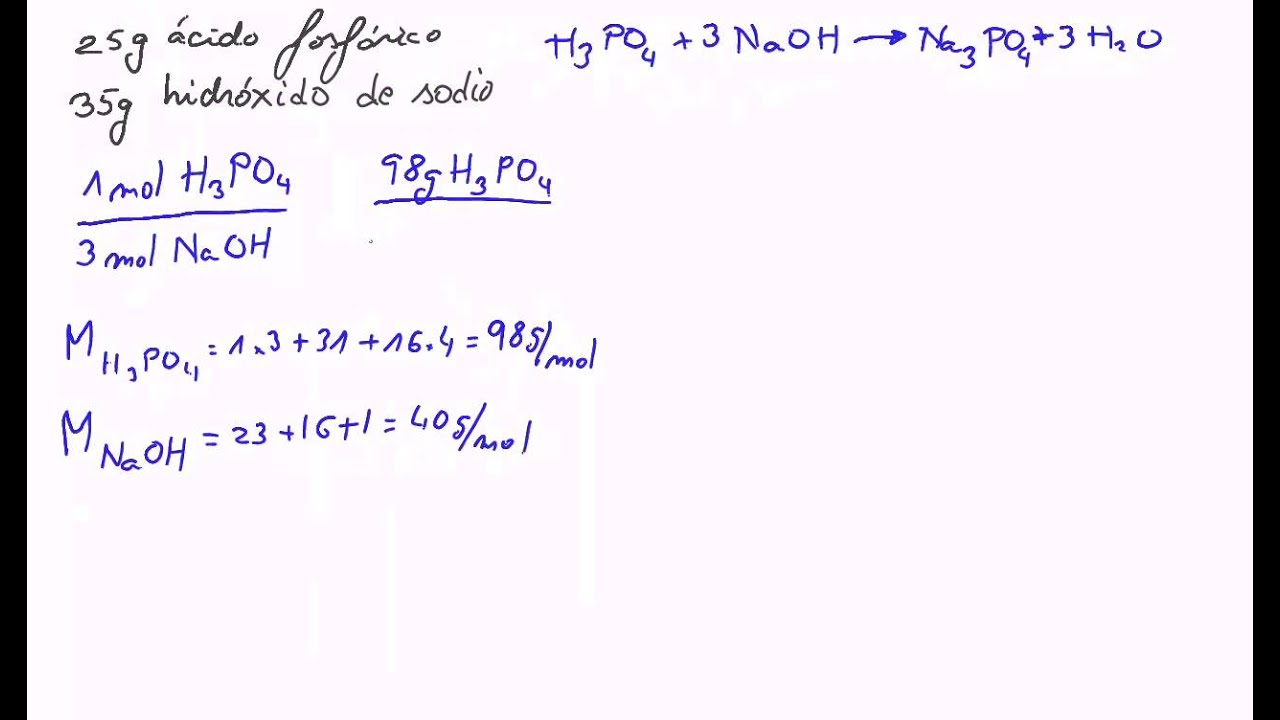 25g ácido fosfórico
35g hidróxido de sodio
H₃PO₄ + 3 NaOH → Na₃PO₄ + 3 H₂O
1 mol H₃PO₄
3 mol NaOH
98g H₃PO₄
M H₃PO₄ = 1.3 + 31 + 16.4 = 98g/mol
M NaOH = 23 + 16 + 1 = 40g/mol